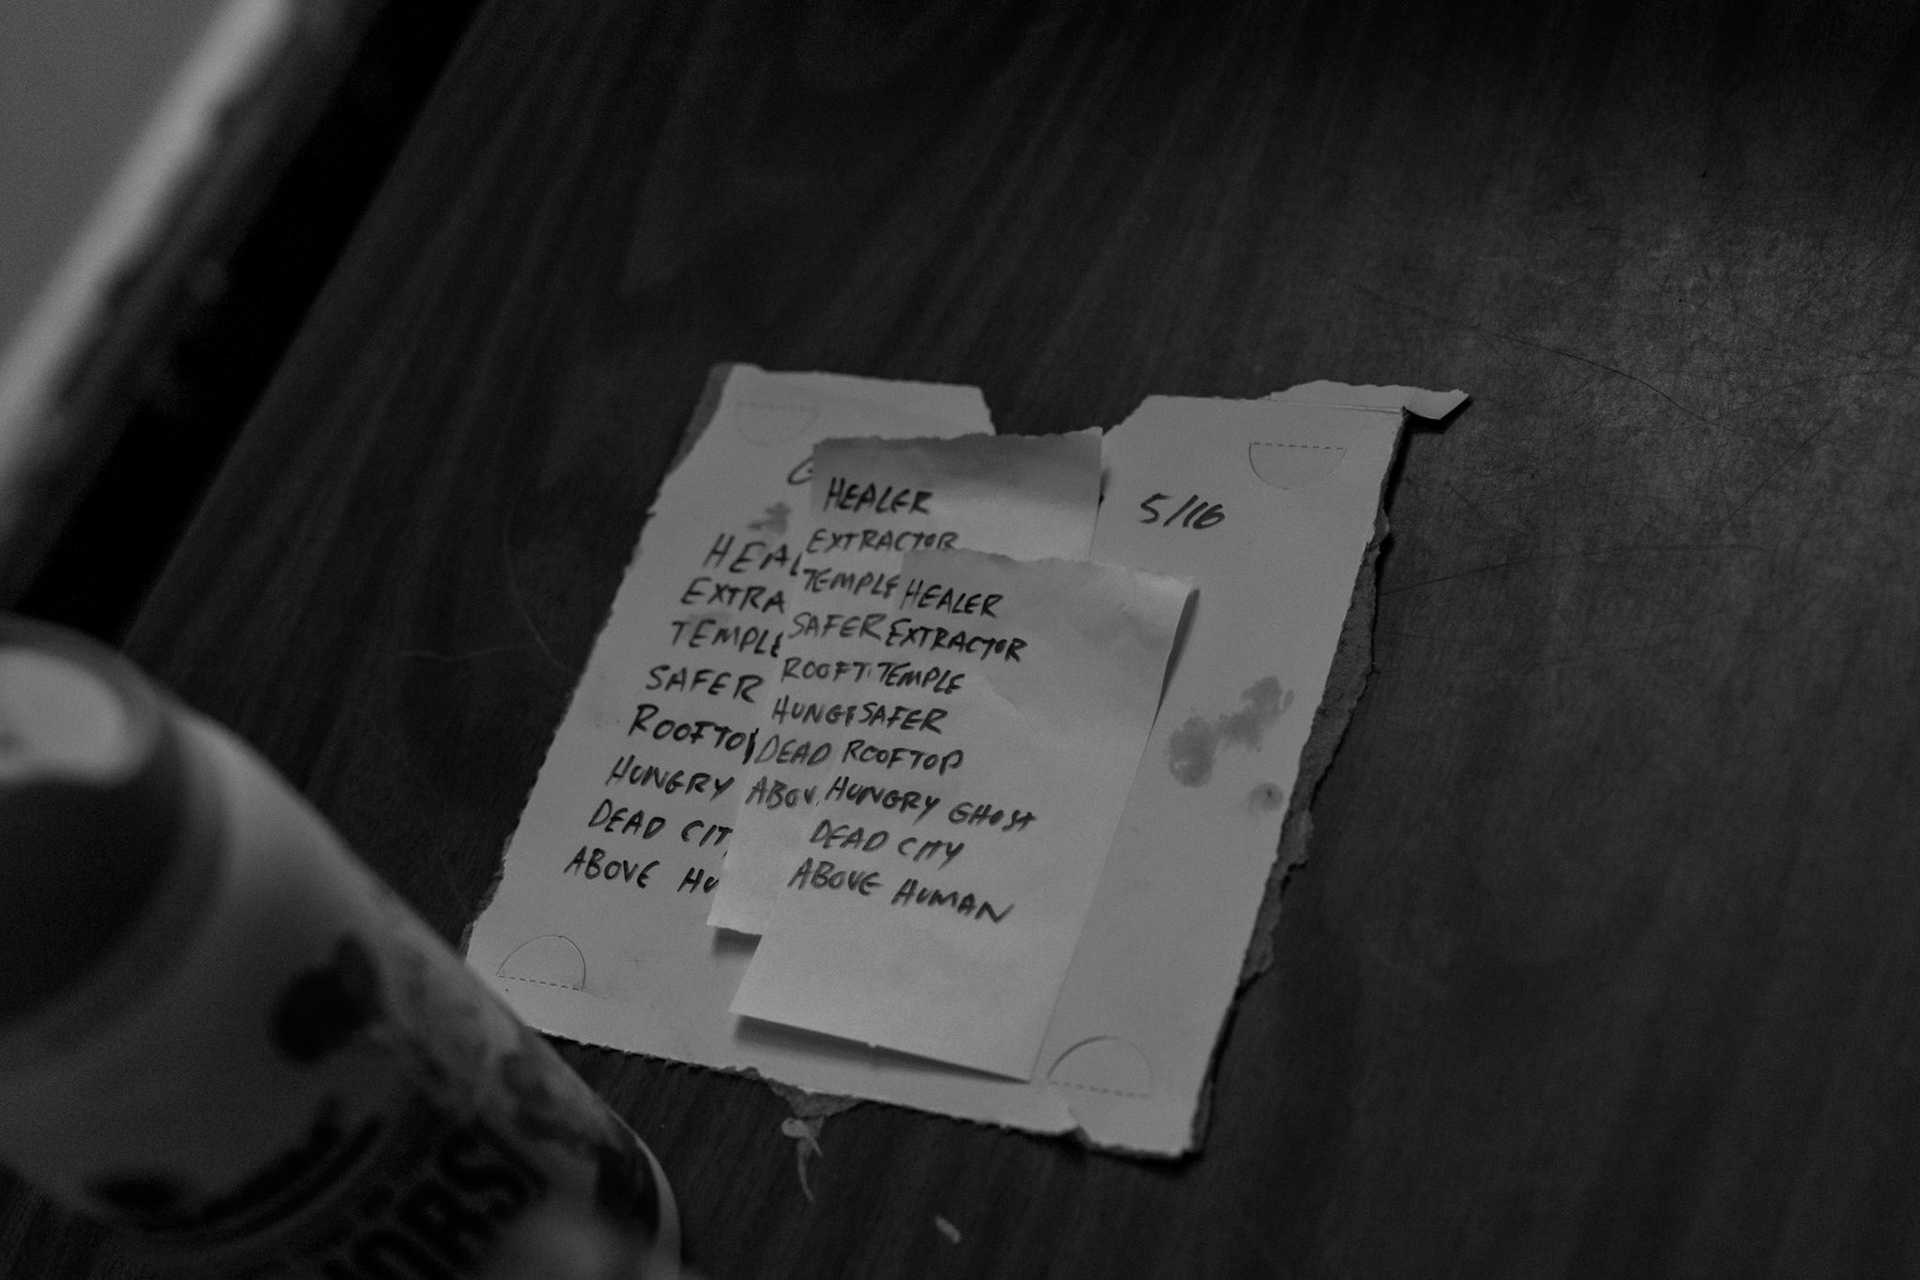 5/16
HEAL
EXTRA
TEMPLE
SAFER
ROOFTO
HUNGRY
DEAD CIT
ABOVE HU
HEALER
EXTRACTOR
TEMPLE
SAFER
ROOFT
HUNG
DEAD
ABOV
HEALER
EXTRACTOR
TEMPLE
SAFER
ROOFTOP
HUNGRY GHOST
DEAD CITY
ABOVE HUMAN